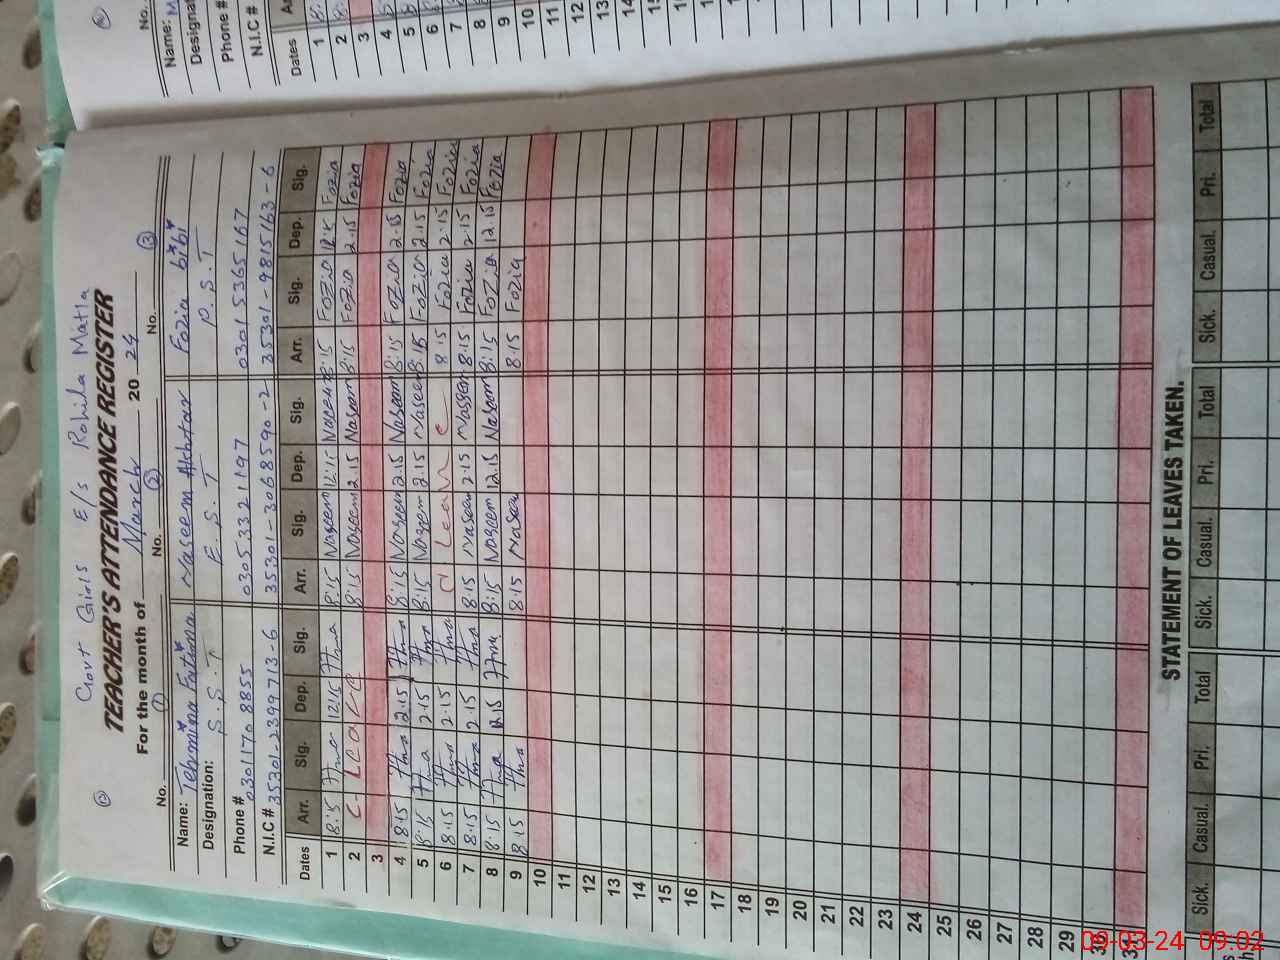 Govt Girls E/S Rohila Matla
TEACHER'S ATTENDANCE REGISTER
For the month of March 20 24
No. 1 No. 2 No. 3
Name: Tehmina Fatima Naseem Akhtar Fozia bibi
Designation: S.S.T E.S.T P.S.T
Phone # 03011708855 03053321197 03015365167
N.I.C # 35301-2399713-6 35301-3068590-2 35301-9815163-6
Dates Arr. Sig. Dep. Sig. Arr. Sig. Dep. Sig. Arr. Sig. Dep. Sig.
1 8:15 12:15 8:15 Naseem 12:15 Naseem 8:15 Fozia Fozia
2 C- Leave 8:15 Naseem 2.15 Naseem 8:15 Fozia 2.15 Fozia
3
4 8:15 2.15 8:15 Naseem 2.15 Naseem 8:15 Fozia 2.15 Fozia
5 8:15 2.15 8:15 Naseem 2.15 Naseem 8:15 Fozia 2.15 Fozia
6 8:15 2.15 C Leave 8:15 Fozia 2.15 Fozia
7 8:15 2.15 8:15 Naseem 2.15 Naseem 8:15 Fozia 2.15 Fozia
8 8:15 12.15 8:15 Naseem 12.15 Naseem 8:15 Fozia 12.15 Fozia
9 8:15 8:15 Naseem 8:15 Fozia
10
11
12
13
14
15
16
17
18
19
20
21
22
23
24
25
26
27
28
29
30
STATEMENT OF LEAVES TAKEN.
Sick. Casual. Pri. Total Sick. Casual. Pri. Total Sick. Casual. Pri. Total
No.
Name:
Phone #
N.I.C #
Dates
1
2
3
4
5
6
7
8
9
10
11
12
13
14
09-03-24 09:02